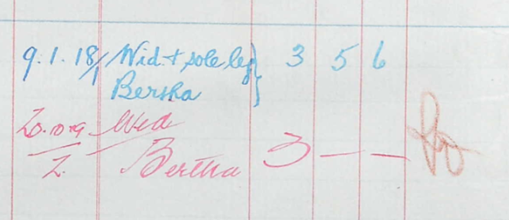 9.1.18/1 Wid + sole leg} 3 5 6
Bertha
20.10.19 Wid
2. Bertha 3 — —